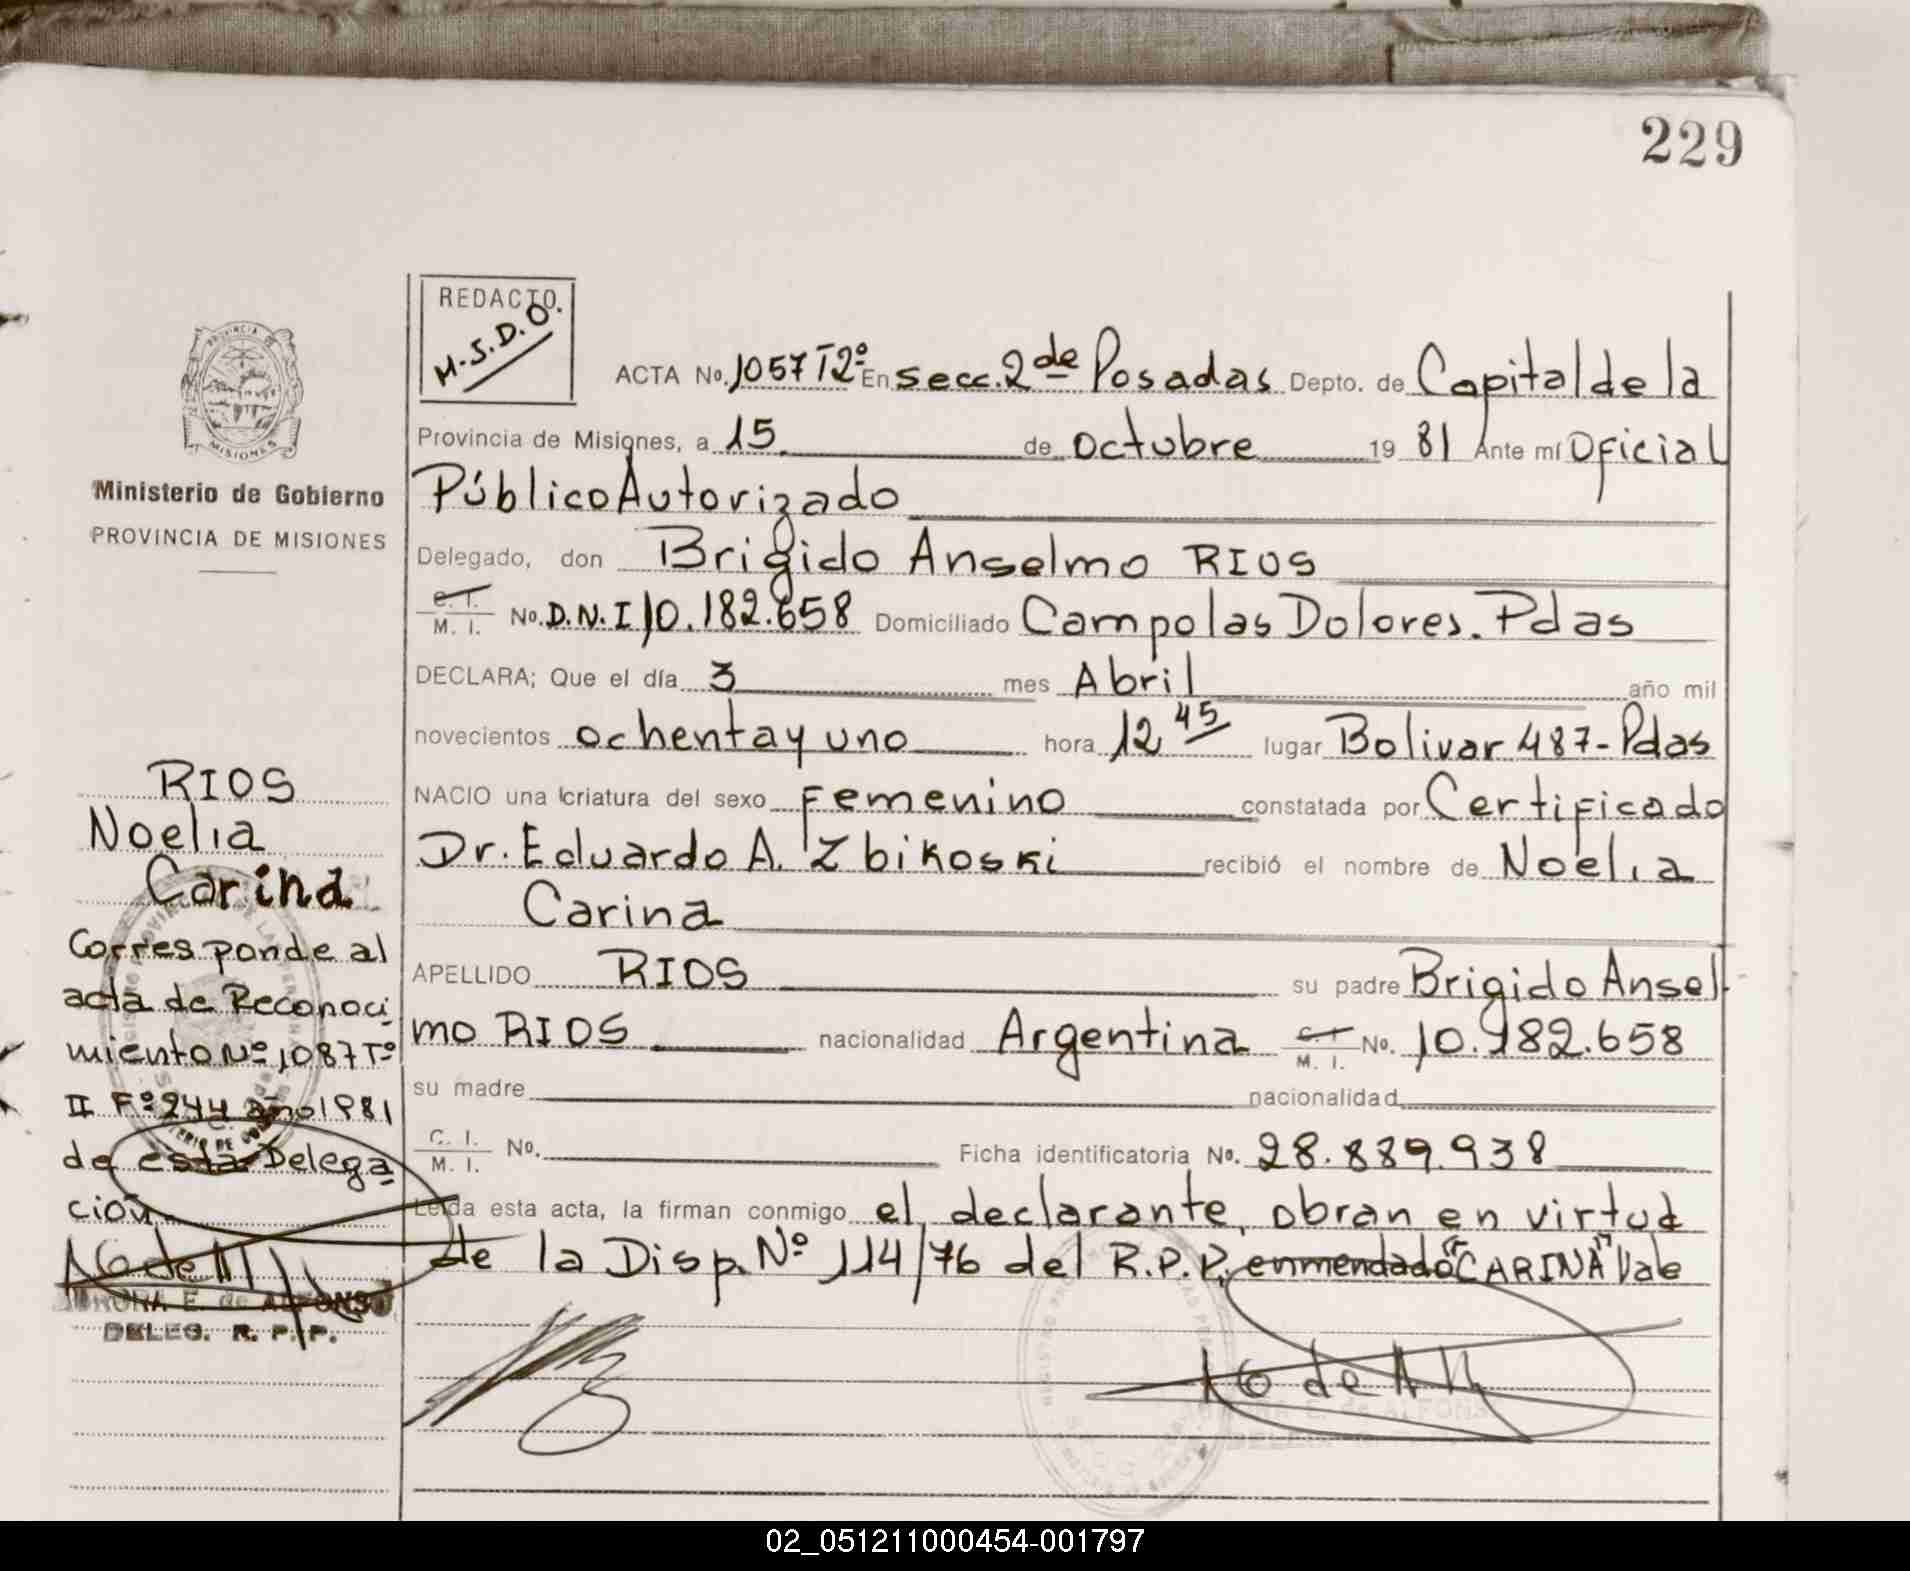 229
REDACTO.
M.S.D.O.
ACTA No. 1057 T2º En secc. 2 de Posadas Depto. de Capital de la
Provincia de Misiones, a 15 de octubre 19 81 Ante mí Oficial
Público Autorizado
Delegado, don Brigido Anselmo RIOS
C. I.
M. I. No. D.N.I 10.182.658 Domiciliado Campo las Dolores. Pdas
DECLARA; Que el día 3 mes Abril año mil
novecientos ochenta y uno hora 12 45 lugar Bolivar 487 - Pdas
NACIO una criatura del sexo Femenino constatada por Certificado
Dr. Eduardo A. Zbikoski recibió el nombre de Noelia
Carina
APELLIDO RIOS su padre Brigido Ansel-
mo RIOS nacionalidad Argentina C. I. M. I. No. 10.182.658
su madre nacionalidad
C. I.
M. I. No. Ficha identificatoria No. 28.889.938
Leída esta acta, la firman conmigo el declarante, obran en virtud
de la Disp. Nº 114/76 del R.P.P. enmendado "CARINA" Vale
PROVINCIA DE
MISIONES
Ministerio de Gobierno
PROVINCIA DE MISIONES
RIOS
Noelia
Carina
Corresponde al
acta de Reconoci
miento Nº 1087 Tº
II Fº 244 año 1981
de esta Delega
ción
E. de ALFONSO
DELEG. R. P. P.
E. de ALFONSO
02_051211000454-001797